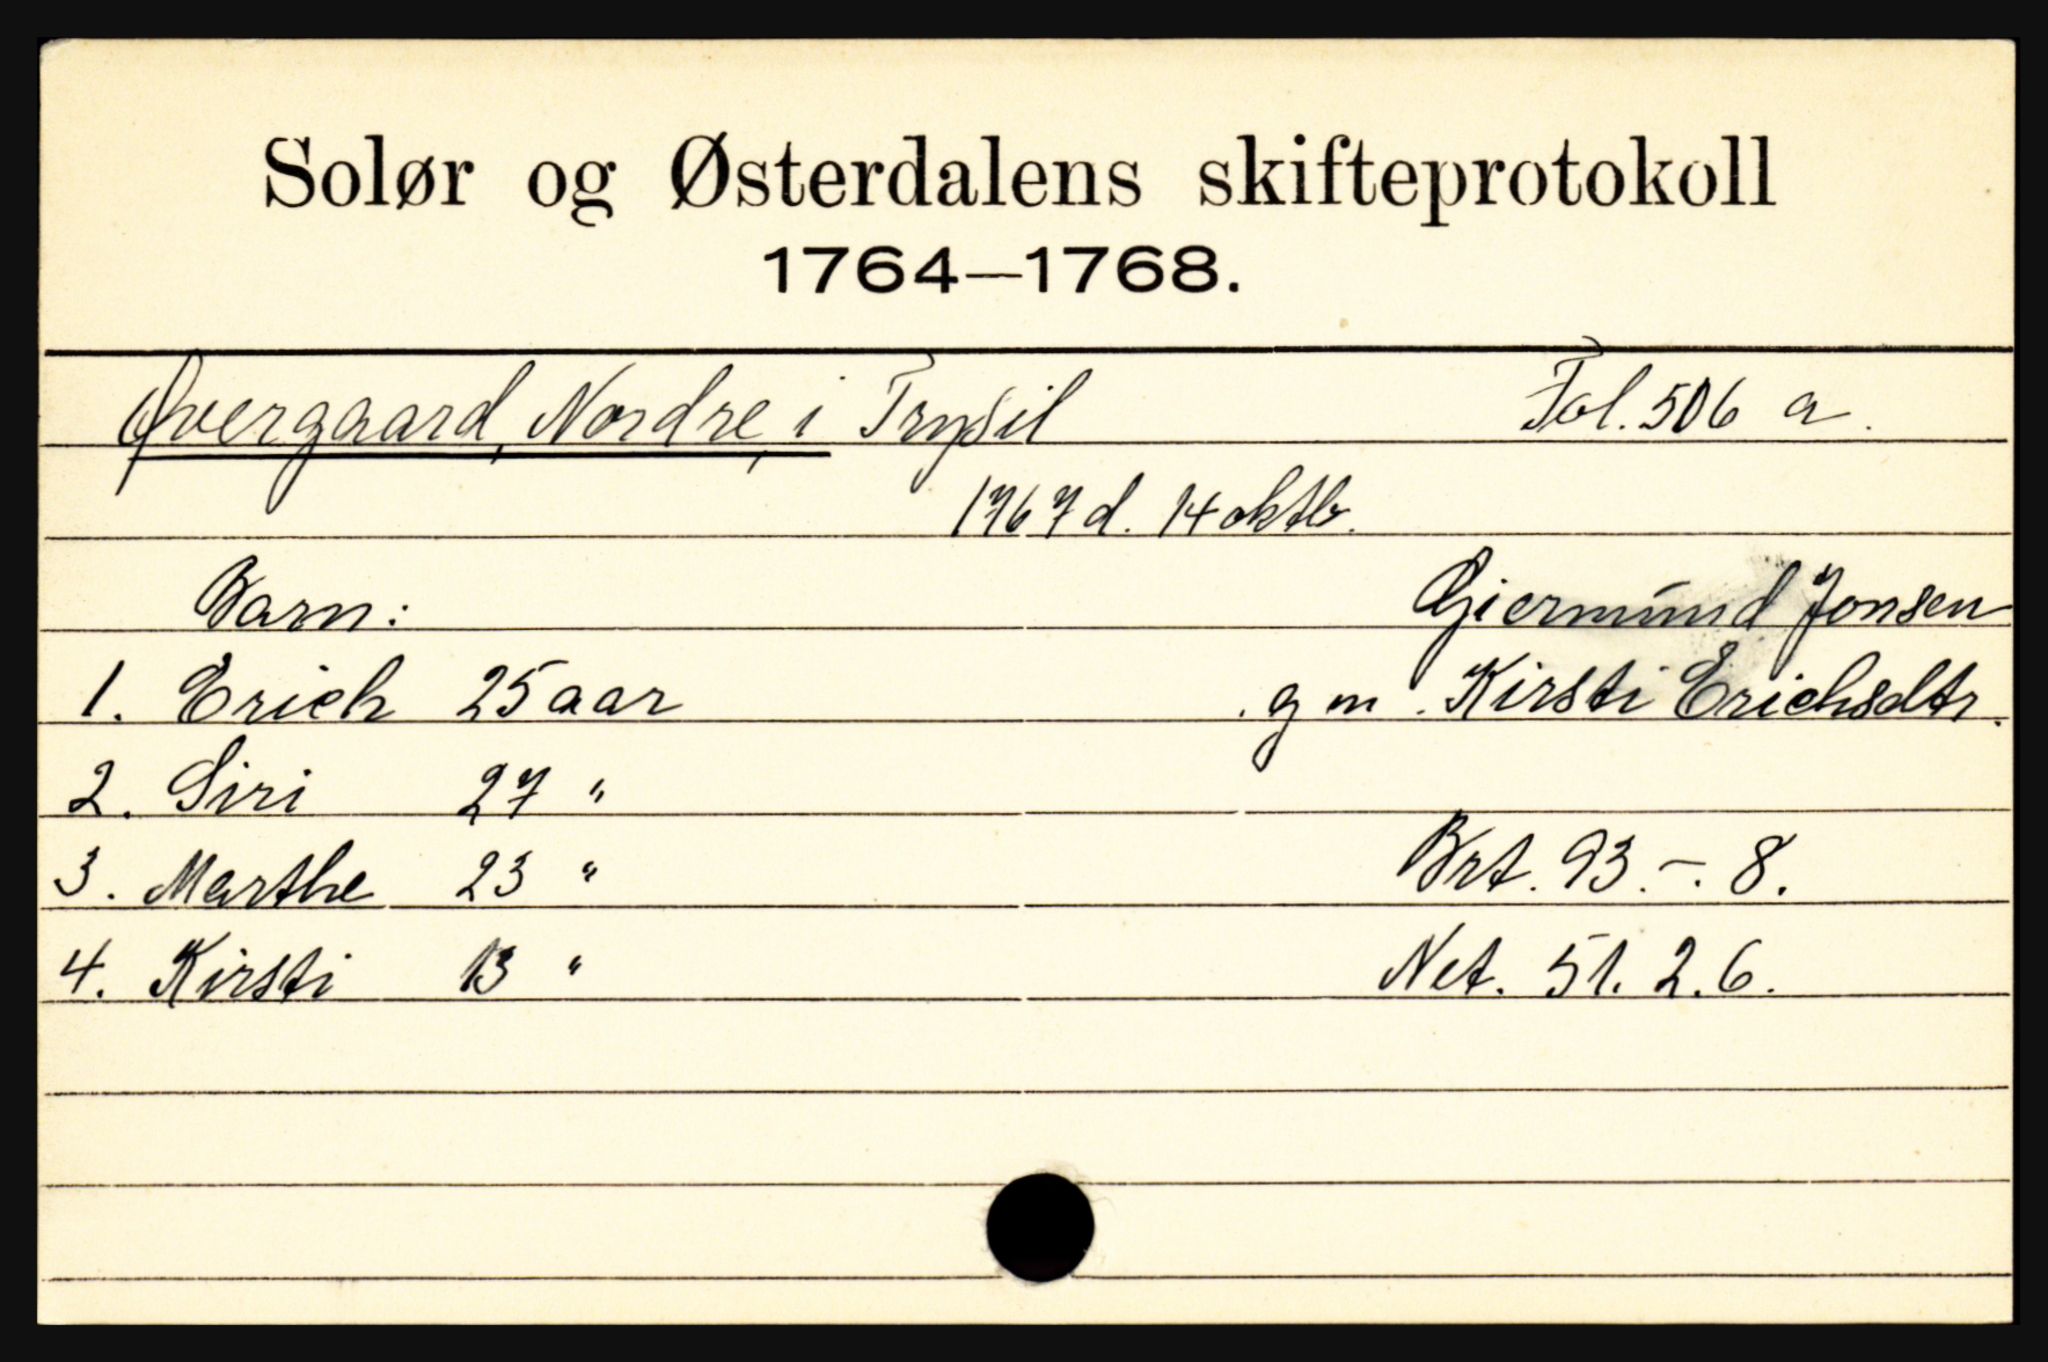 Solør og Østerdalens skifteprotokoll
1764—1768.
Øvergaard, Nordre, i Trysil Fol. 506 a.
1767 d. 14 oktb.
Barn: Gjermund Jonsen
1. Erich 25 aar g m. Kirsti Erichsdtr.
2. Siri 27 "
3. Marthe 23 " Brt. 93.-. 8.
4. Kirsti 13 " Net. 51. 2. 6.